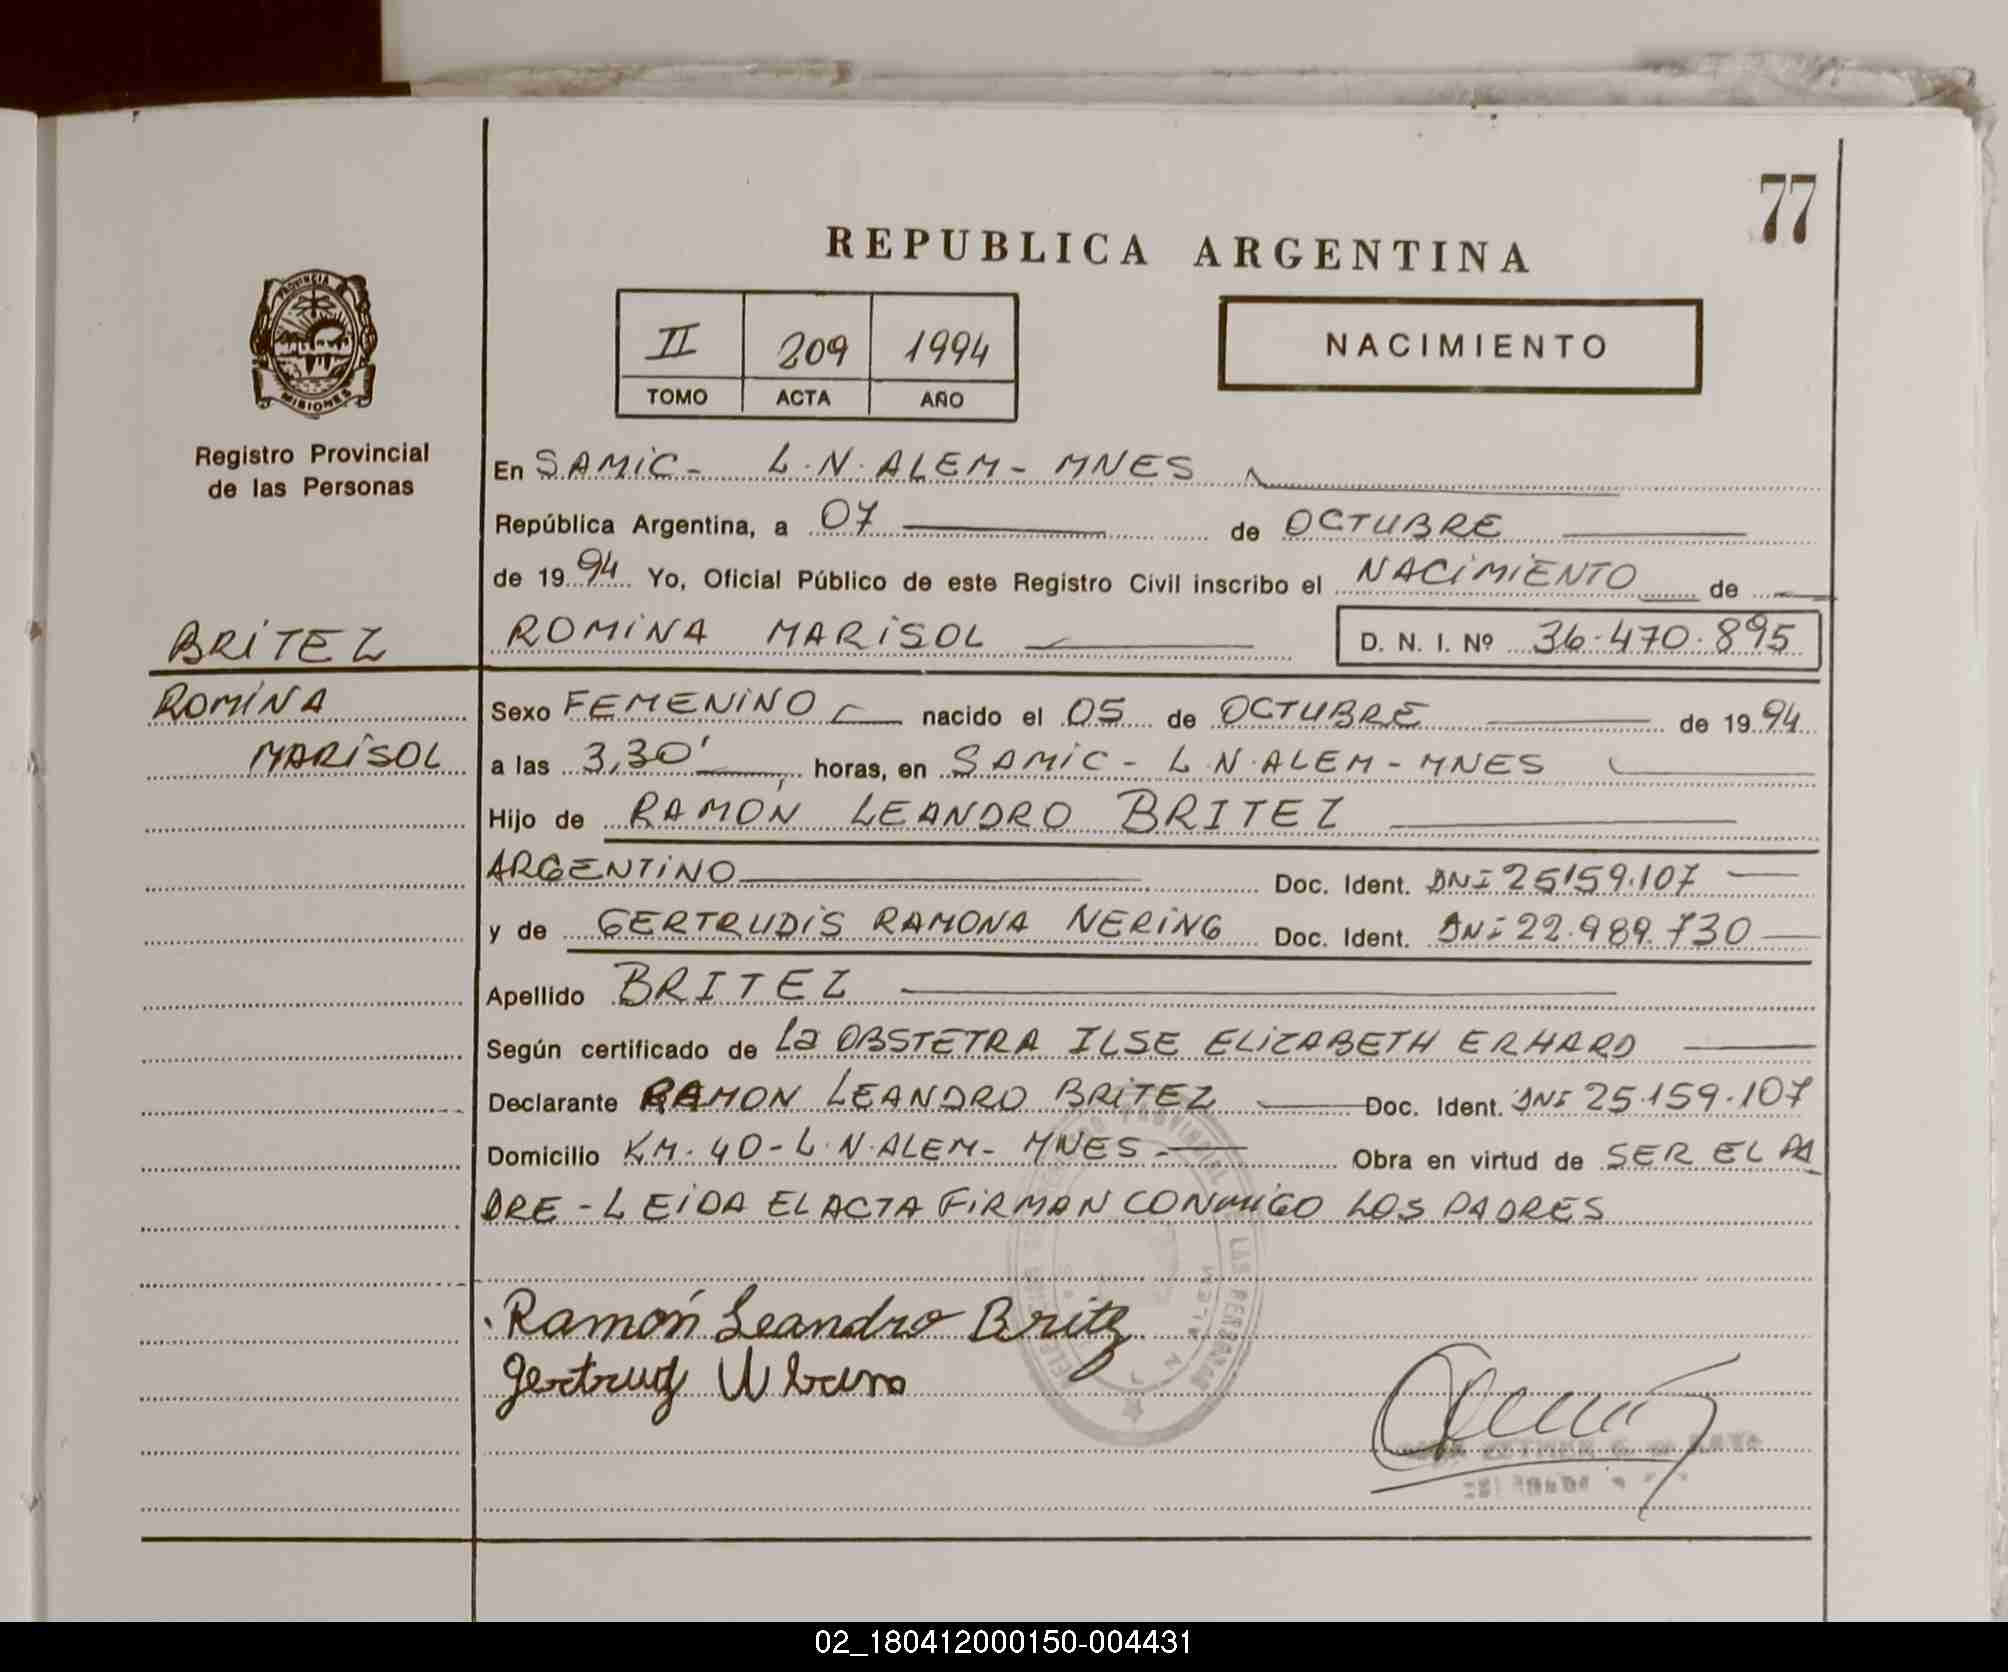 77
REPUBLICA ARGENTINA
PROVINCIA
MISIONES
Registro Provincial
de las Personas
II 209 1994
TOMO ACTA AÑO
NACIMIENTO
En SAMIC- L.N.ALEM- MNES
República Argentina, a 07 de OCTUBRE
de 1994 Yo, Oficial Público de este Registro Civil inscribo el NACIMIENTO de
BRITEZ
ROMINA MARISOL D. N. I. Nº 36.470.895
ROMINA
MARISOL
Sexo FEMENINO nacido el 05 de OCTUBRE de 1994
a las 3,30' horas, en SAMIC - L.N.ALEM - MNES
Hijo de RAMÓN LEANDRO BRITEZ
ARGENTINO Doc. Ident. DNI 25159.107
y de GERTRUDIS RAMONA NERING Doc. Ident. DNI 22.989.730
Apellido BRITEZ
Según certificado de la OBSTETRA ILSE ELIZABETH ERHARD
Declarante RAMON LEANDRO BRITEZ Doc. Ident. DNI 25.159.107
Domicilio KM. 40 - L.N.ALEM- MNES - Obra en virtud de SER EL PA
DRE - LEIDA EL ACTA FIRMAN CONMIGO LOS PADRES
Ramón Leandro Britz
02_180412000150-004431